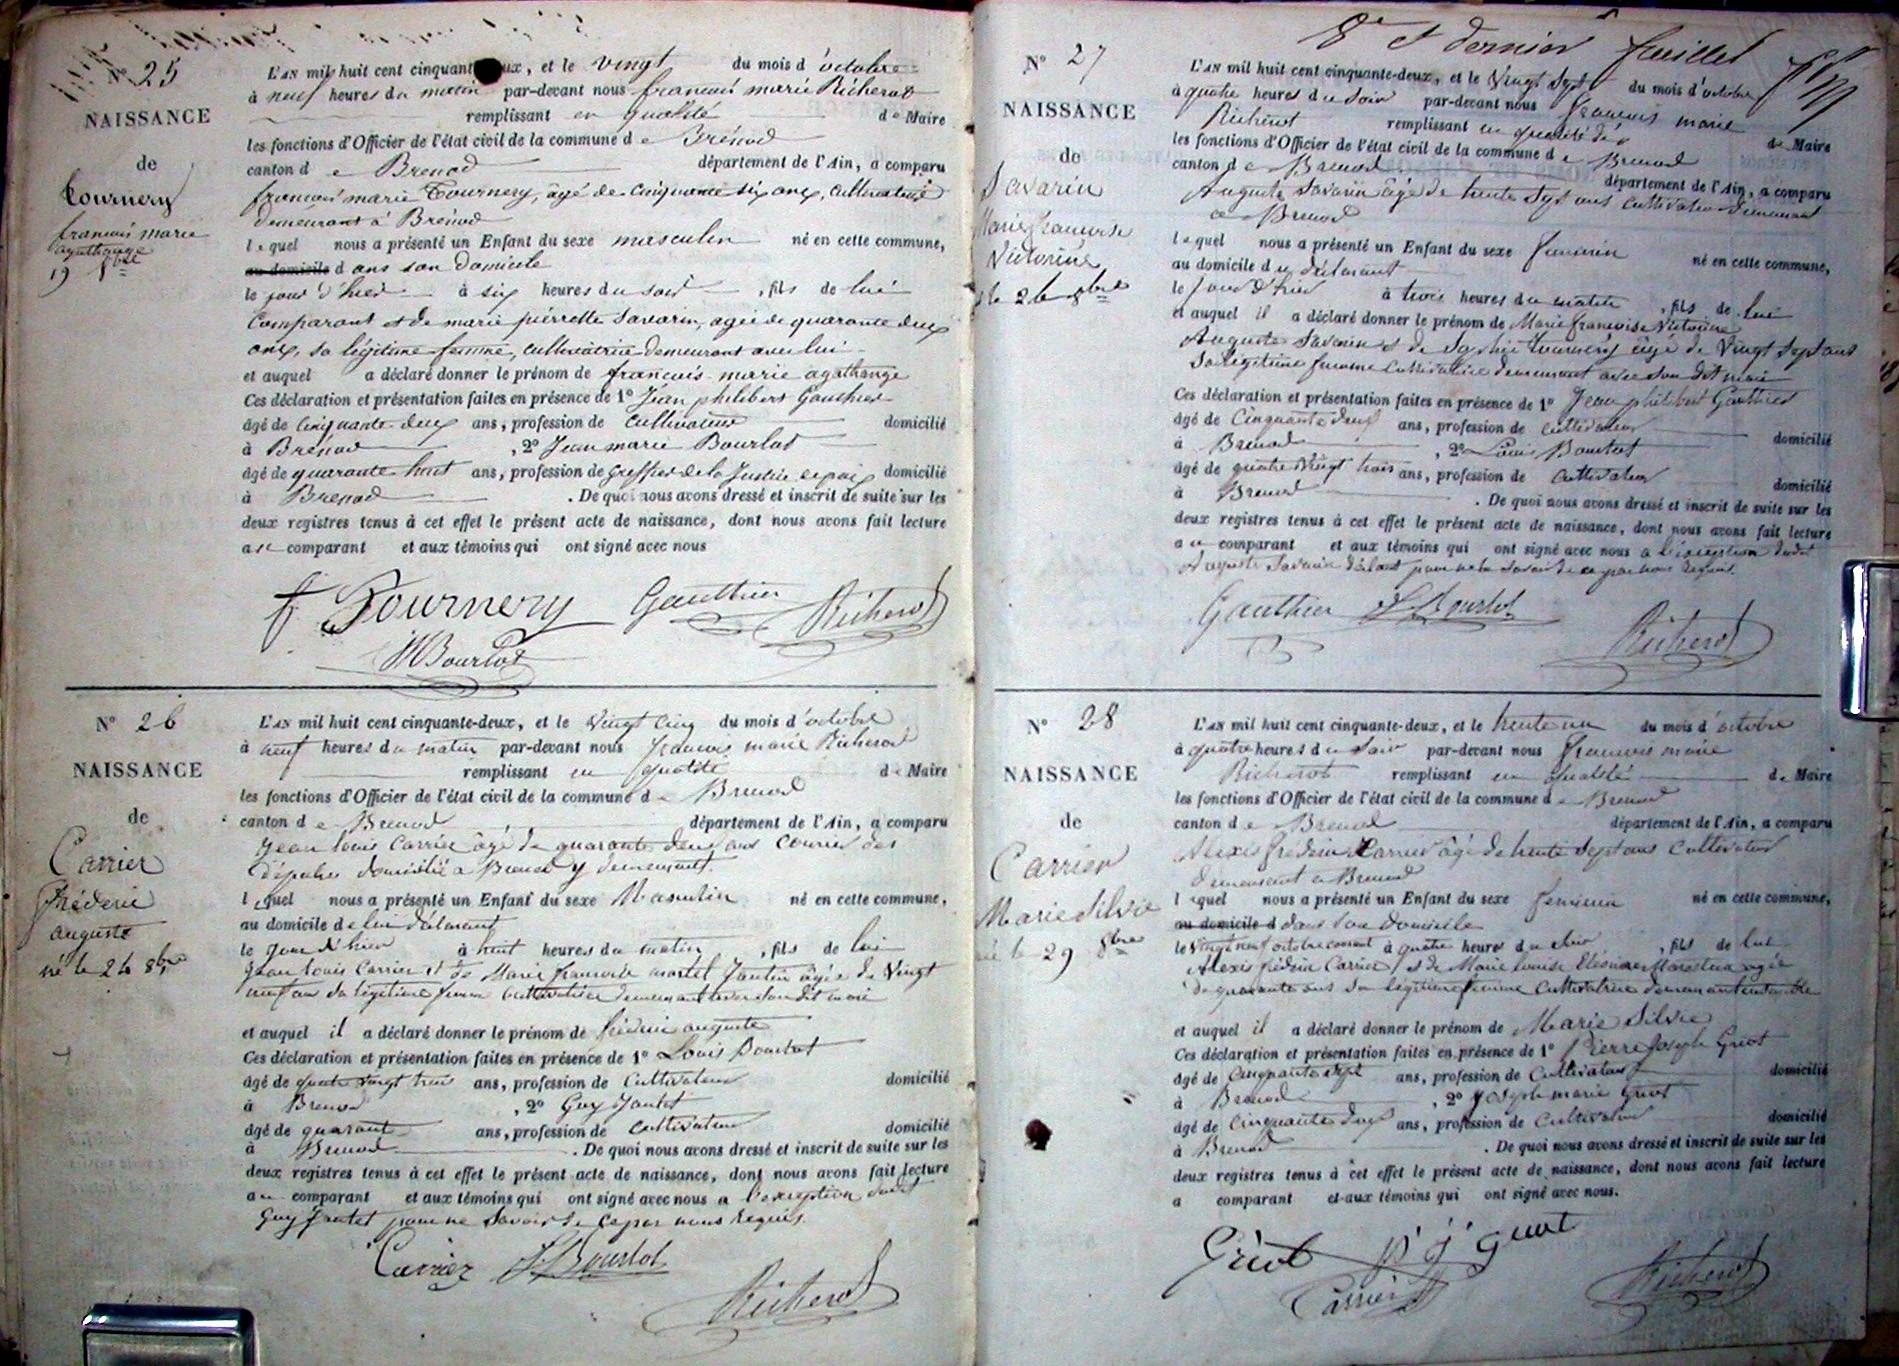 N° 25
NAISSANCE
de
Tournery
françois marie
agathange
19 8bre
L'AN mil huit cent cinquante-deux, et le vingt du mois d'octobre
à neuf heures du matin par-devant nous françois marie Richerot
remplissant en qualité de Maire
les fonctions d'Officier de l'état civil de la commune de Brénod
canton de Brenod département de l'Ain, a comparu
françois marie Tournery, âgé de cinquante six ans, cultivateur
demeurant à Brénod
lequel nous a présenté un Enfant du sexe masculin né en cette commune,
au domicile dans son domicile
le jour d'hier à six heures du soir, fils de lui
comparant et de marie pierrette Savarin, agée de quarante deux
ans, sa légitime femme, cultivatrice demeurant avec lui
et auquel a déclaré donner le prénom de françois-marie agathange
Ces déclaration et présentation faites en présence de 1° Jean philibert Gauthier
âgé de cinquante deux ans, profession de cultivateur domicilié
à Brénod, 2° Jean marie Bourlot
âgé de quarante huit ans, profession de greffier de la Justice de paix domicilié
à Brenod. De quoi nous avons dressé et inscrit de suite sur les
deux registres tenus à cet effet le présent acte de naissance, dont nous avons fait lecture
au comparant et aux témoins qui ont signé avec nous
f Tournery Gauthier Richerot
JMBourlot
N° 26
NAISSANCE
de
Carrier
Fréderic
auguste
né le 24 8bre
L'AN mil huit cent cinquante-deux, et le vingt cinq du mois d'octobre
à neuf heures du matin par-devant nous françois marie Richerot
remplissant en qualité de Maire
les fonctions d'Officier de l'état civil de la commune de Brenod
canton de Brenod département de l'Ain, a comparu
Jean Louis Carrier âgé de quarante deux ans Courier des
dépêches domicilié à Brenod y demeurant.
lequel nous a présenté un Enfant du sexe Masculin né en cette commune,
au domicile de lui déclarant
le jour d'hier à huit heures du matin, fils de lui
Jean Louis Carrier et de Marie françoise martel Jantet âgée de Vingt
neuf ans sa légitime femme cultivatrice demeurant avec son dit mari
et auquel il a déclaré donner le prénom de fréderic auguste
Ces déclaration et présentation faites en présence de 1° Louis Bourlot
âgé de quatre vingt trois ans, profession de cultivateur domicilié
à Brenod, 2° Guy Jantet
âgé de quarante ans, profession de cultivateur domicilié
à Brenod. De quoi nous avons dressé et inscrit de suite sur les
deux registres tenus à cet effet le présent acte de naissance, dont nous avons fait lecture
au comparant et aux témoins qui ont signé avec nous a l'exception dudit
Guy Jantet pour ne savoir de ce par nous requis.
Carrier L Bourlot
Richerot
8e et dernier feuillet
N° 27
NAISSANCE
de
Savarin
Marie françoise
Victorine
le 26 8bre
L'AN mil huit cent cinquante-deux, et le Vingt Sept du mois d'octobre
à quatre heures du soir par-devant nous françois marie
Richerot remplissant en qualité de Maire
les fonctions d'Officier de l'état civil de la commune de Brenod
canton de Brenod département de l'Ain, a comparu
Auguste Savarin âgé de trente Sept ans cultivateur demeurant
a Brenod
lequel nous a présenté un Enfant du sexe feminin né en cette commune,
au domicile du déclarant
le jour d'hier à trois heures du matin, fils de lui
et auquel il a déclaré donner le prénom de Marie françoise Victorine
Auguste Savarin et de Sophie tournery âgé de Vingt Sept ans
Sa légitime femme cultivatrice demeurant avec son dit mari
Ces déclaration et présentation faites en présence de 1° Jean philibert Gauthier
âgé de Cinquante deux ans, profession de cultivateur
à Brenod domicilié, 2° Louis Bourlot
âgé de quatre Vingt trois ans, profession de cultivateur
à Brenod domicilié. De quoi nous avons dressé et inscrit de suite sur les
deux registres tenus à cet effet le présent acte de naissance, dont nous avons fait lecture
au comparant et aux témoins qui ont signé avec nous a l'exception dudit
Auguste Savarin déclarant pour ne le savoir de ce par nous requis.
Gauthier L Bourlot
Richerot
N° 28
NAISSANCE
de
Carrier
Marie Silvie
né le 29 8bre
L'AN mil huit cent cinquante-deux, et le trente un du mois d'octobre
à quatre heures du soir par-devant nous françois marie
Richerot remplissant en qualité de Maire
les fonctions d'Officier de l'état civil de la commune de Brenod
canton de Brenod département de l'Ain, a comparu
Alexis frédéric Carrier âgé de trente Sept ans Cultivateur
demeurant a Brenod
lequel nous a présenté un Enfant du sexe feminin né en cette commune,
au domicile d dans son domicile
le Vingt neuf octobre courant à quatre heures du soir, fils de lui
Alexis frédéric Carrier et de Marie Louise agée
de quarante ans sa légitime femme cultivatrice demeurant
et auquel il a déclaré donner le prénom de Marie Silvie
Ces déclaration et présentation faites en présence de 1° Pierre Joseph Griot
âgé de Cinquante sept ans, profession de Cultivateur domicilié
à Brenod, 2° Joseph marie Griot
âgé de Cinquante deux ans, profession de Cultivateur domicilié
à Brenod. De quoi nous avons dressé et inscrit de suite sur les
deux registres tenus à cet effet le présent acte de naissance, dont nous avons fait lecture
a comparant et aux témoins qui ont signé avec nous.
Griot P J Griot
Carrier Richerot